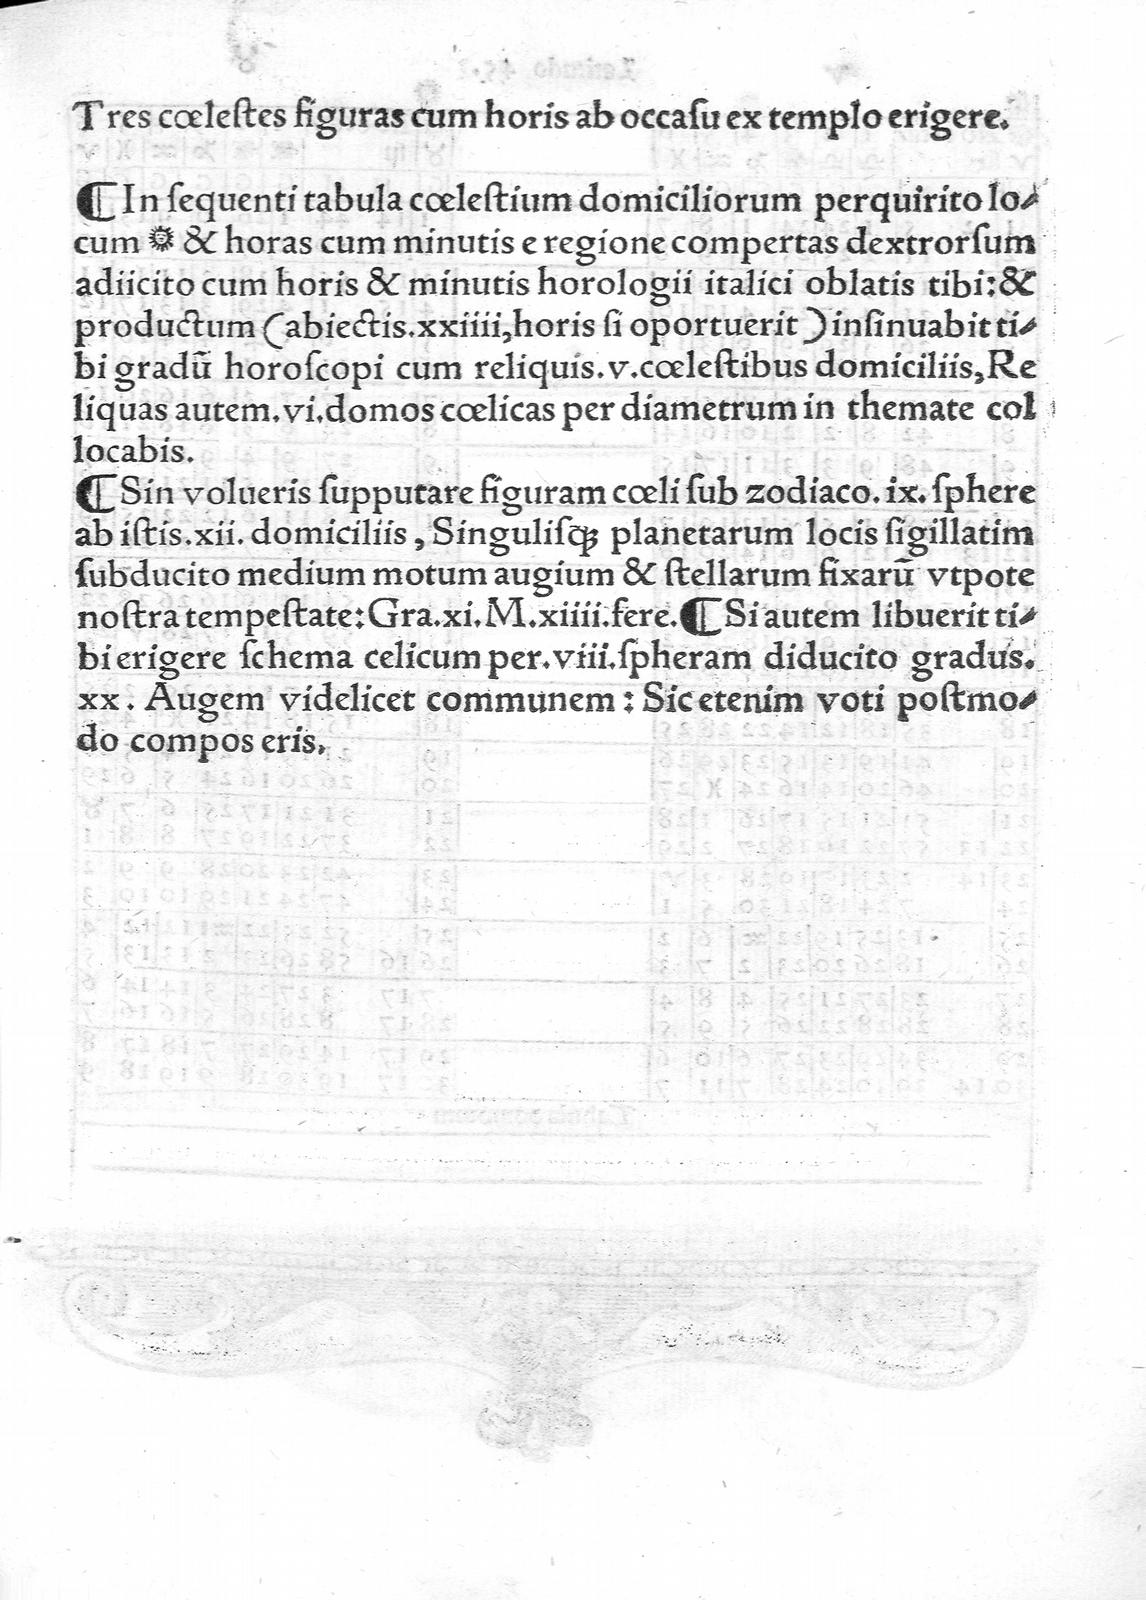 Tres cœleſtes figuras cum horis ab occaſu ex templo erigere.
¶ In ſequenti tabula cœleſtium domiciliorum perquirito lo⸗
cum ☼ & horas cum minutis e regione compertas dextrorſum
adiicito cum horis & minutis horologii italici oblatis tibi: &
productum (abiectis.xxiiii, horis ſi oportuerit) inſinuabit ti⸗
bi gradū horoſcopi cum reliquis.v.cœleſtibus domiciliis, Re
liquas autem.vi.domos cœlicas per diametrum in themate col
locabis.
¶ Sin volueris ſupputare figuram cœli ſub zodiaco.ix.ſphere
ab iſtis.xii. domiciliis, Singuliſqꝫ planetarum locis ſigillatim
ſubducito medium motum augium & ſtellarum fixarū vtpote
noſtra tempeſtate: Gra.xi.M.xiiii.fere. ¶ Si autem libuerit ti⸗
bi erigere ſchema celicum per.viii.ſpheram diducito gradus.
xx. Augem videlicet communem: Sic etenim voti poſtmo⸗
do compos eris.